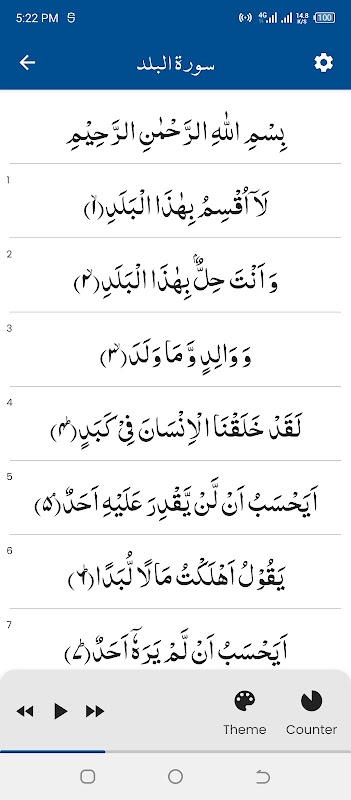 5:22 PM
4G 14.8 K/S 100
سورة البلد
بِسْمِ اللّٰهِ الرَّحْمٰنِ الرَّحِيْمِ
1
لَاۤ اُقْسِمُ بِهٰذَا الْبَلَدِۙ(۱)
2
وَ اَنْتَ حِلٌّۢ بِهٰذَا الْبَلَدِۙ(۲)
3
وَ وَالِدٍ وَّ مَا وَلَدَۙ(۳)
4
لَقَدْ خَلَقْنَا الْاِنْسَانَ فِیْ كَبَدٍؕ(۴)
5
اَیَحْسَبُ اَنْ لَّنْ یَّقْدِرَ عَلَیْهِ اَحَدٌۘ(۵)
6
یَقُوْلُ اَهْلَكْتُ مَالًا لُّبَدًاؕ(۶)
7
اَیَحْسَبُ اَنْ لَّمْ یَرَهٗۤ اَحَدٌؕ(۷)
Theme Counter